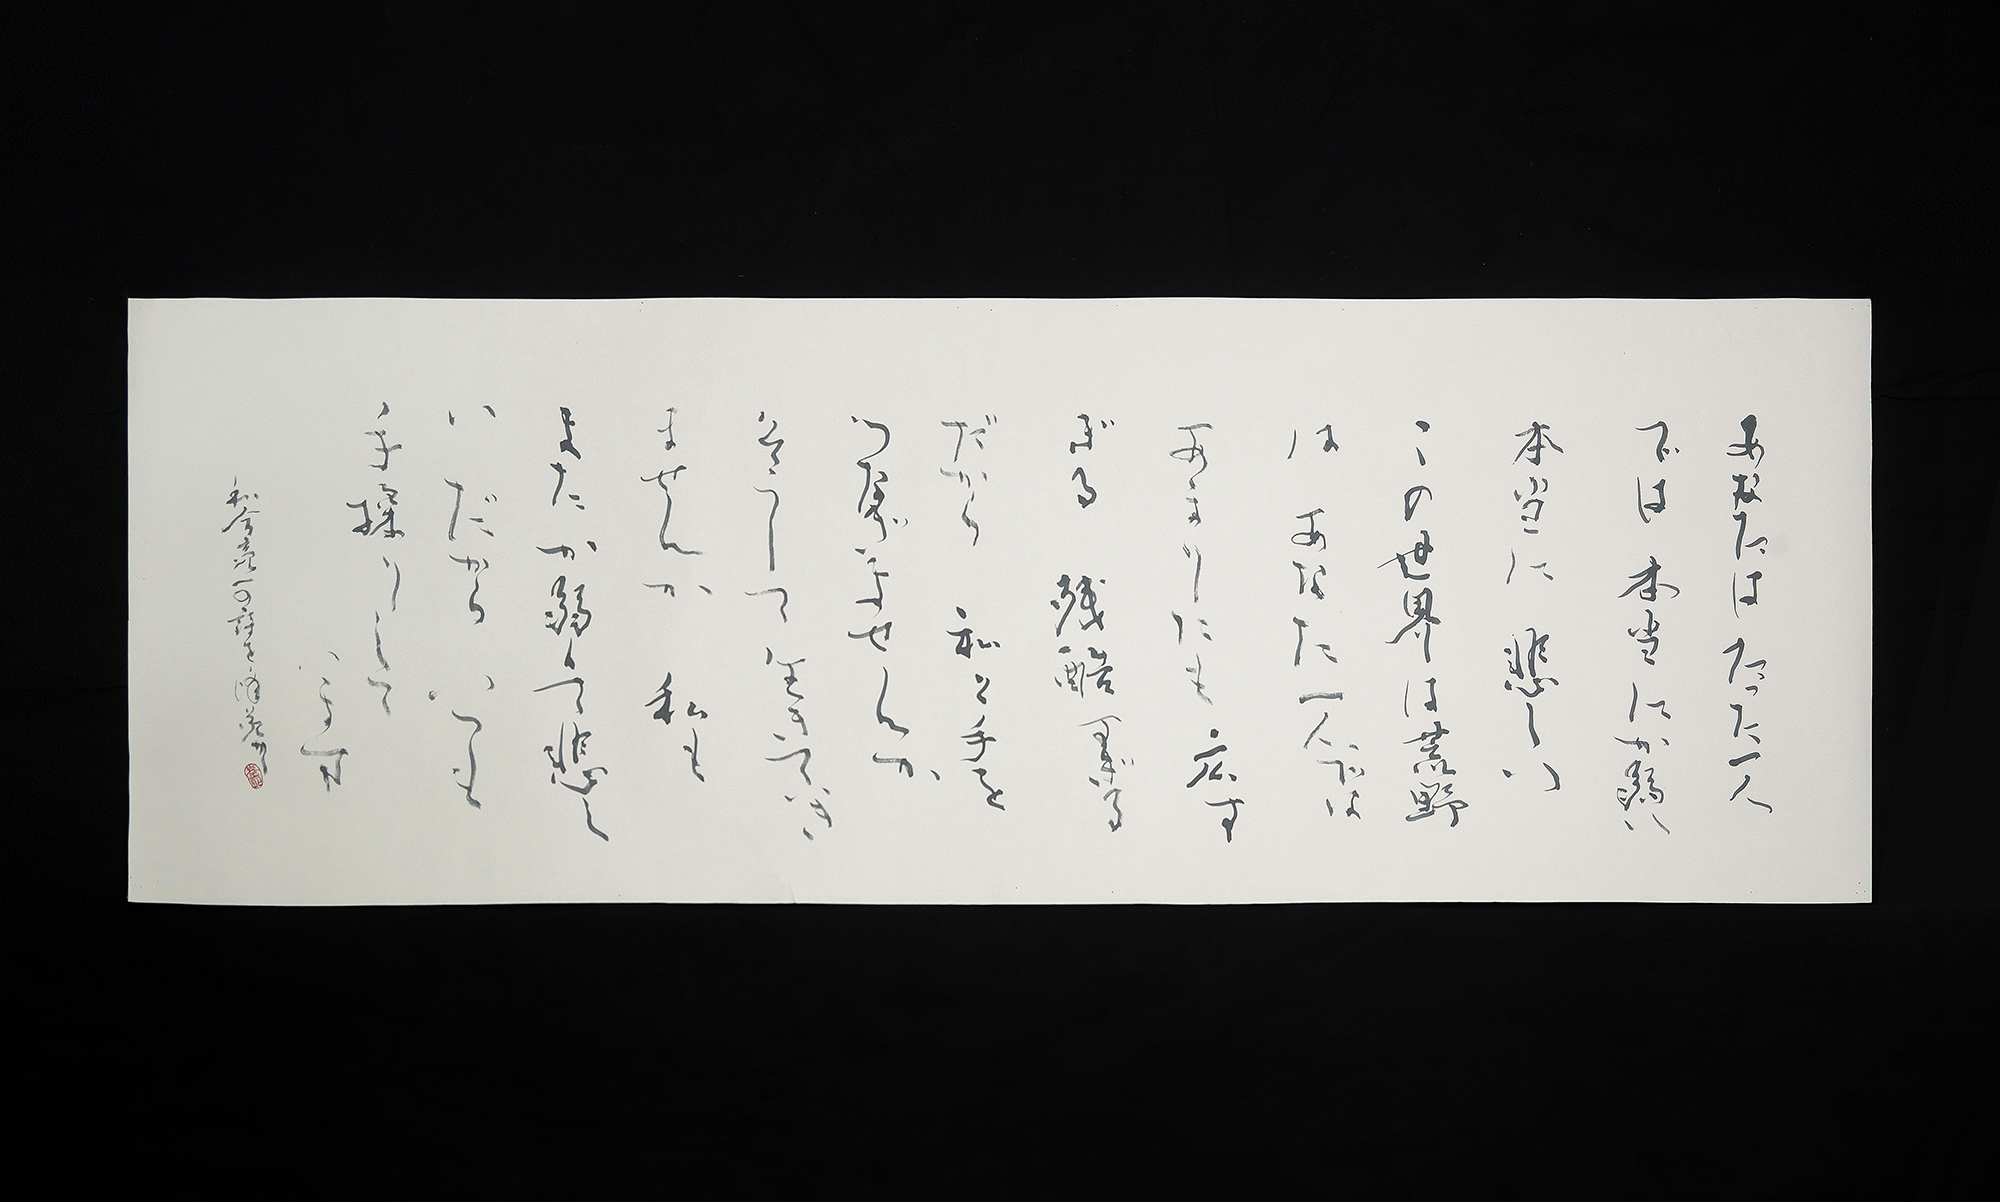 あなたは たった一人
では 本当に か弱い
本当に 悲しい
この世界は荒野
は あなた一人では
あまりにも 広す
ぎる 残酷すぎる
だから 私と手を
つなぎませんか
そうして 生きていき
ませんか 私も
またか弱くて悲し
いだから いつも
手探りして
います
和合亮一の詩を